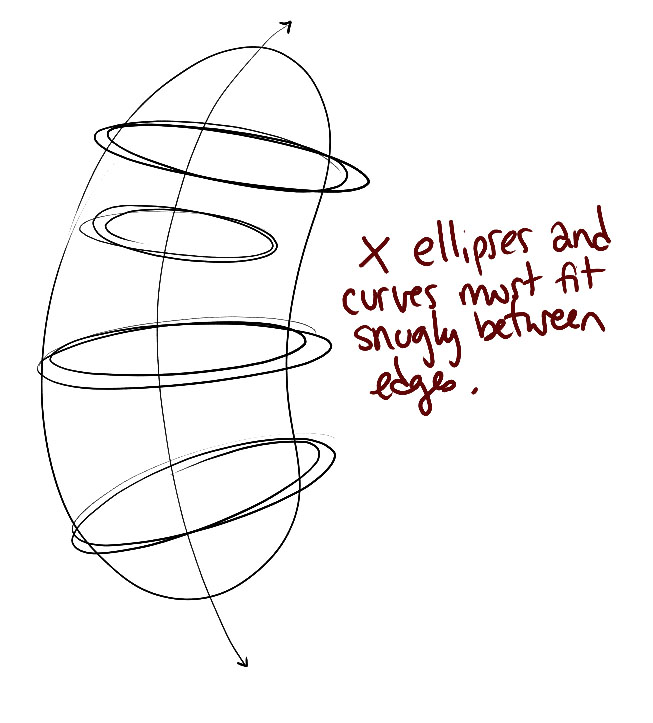 X ellipses and
curves must fit
snugly between
edges.